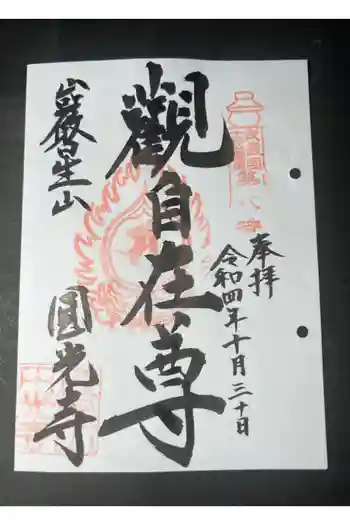 奉拝
令和四年十月三十日
觀自在尊
巌星山
圓光寺